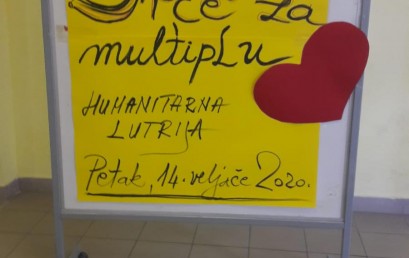 Srce za
multiplu
HUMANITARNA
LUTRIJA
Petak, 14. veljače 2020.